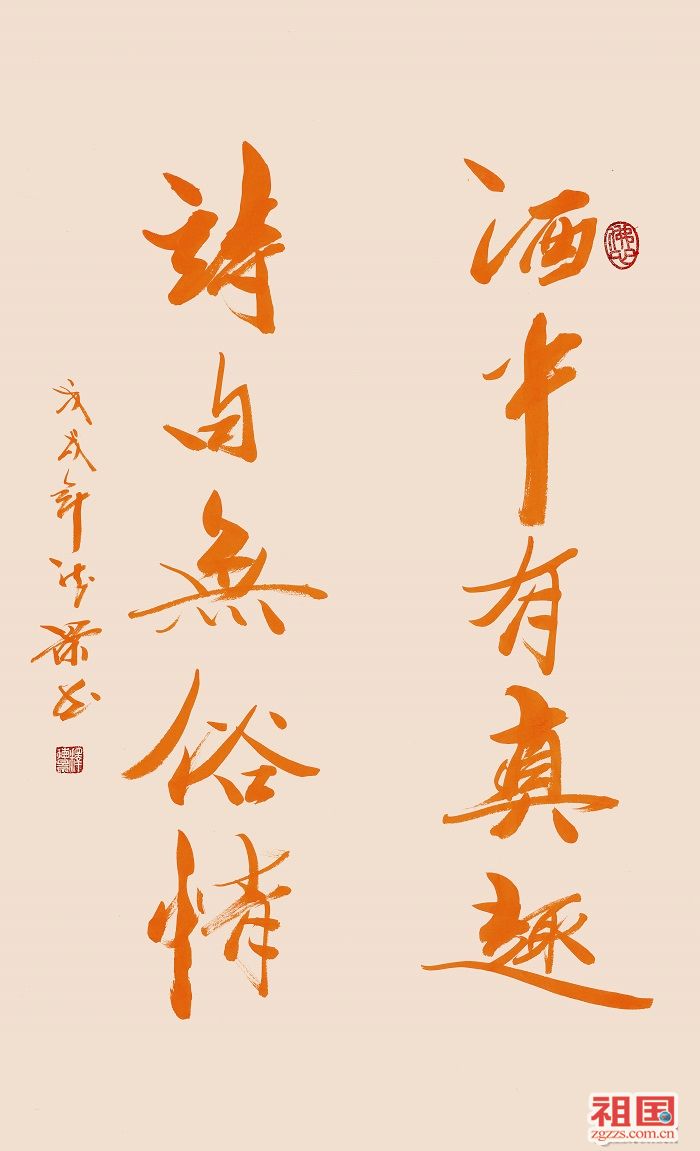 酒中有真趣
詩句無俗情
戊戌年
佛心
祖国
zgzzs.com.cn